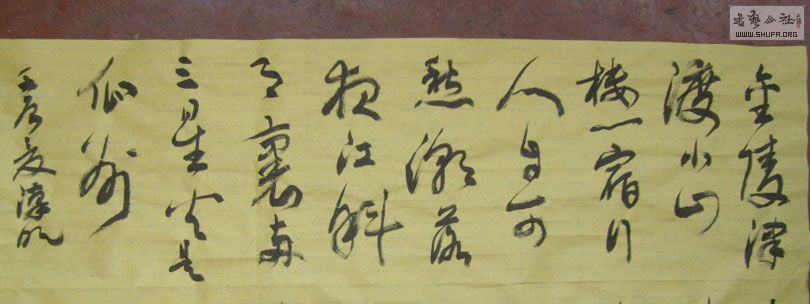 金陵津
渡小山
楼一宿行
人自可
愁潮落
夜江斜
月裏兩
三星火是
瓜洲
壬辰夏
書藝公社
WWW.SHUFA.ORG